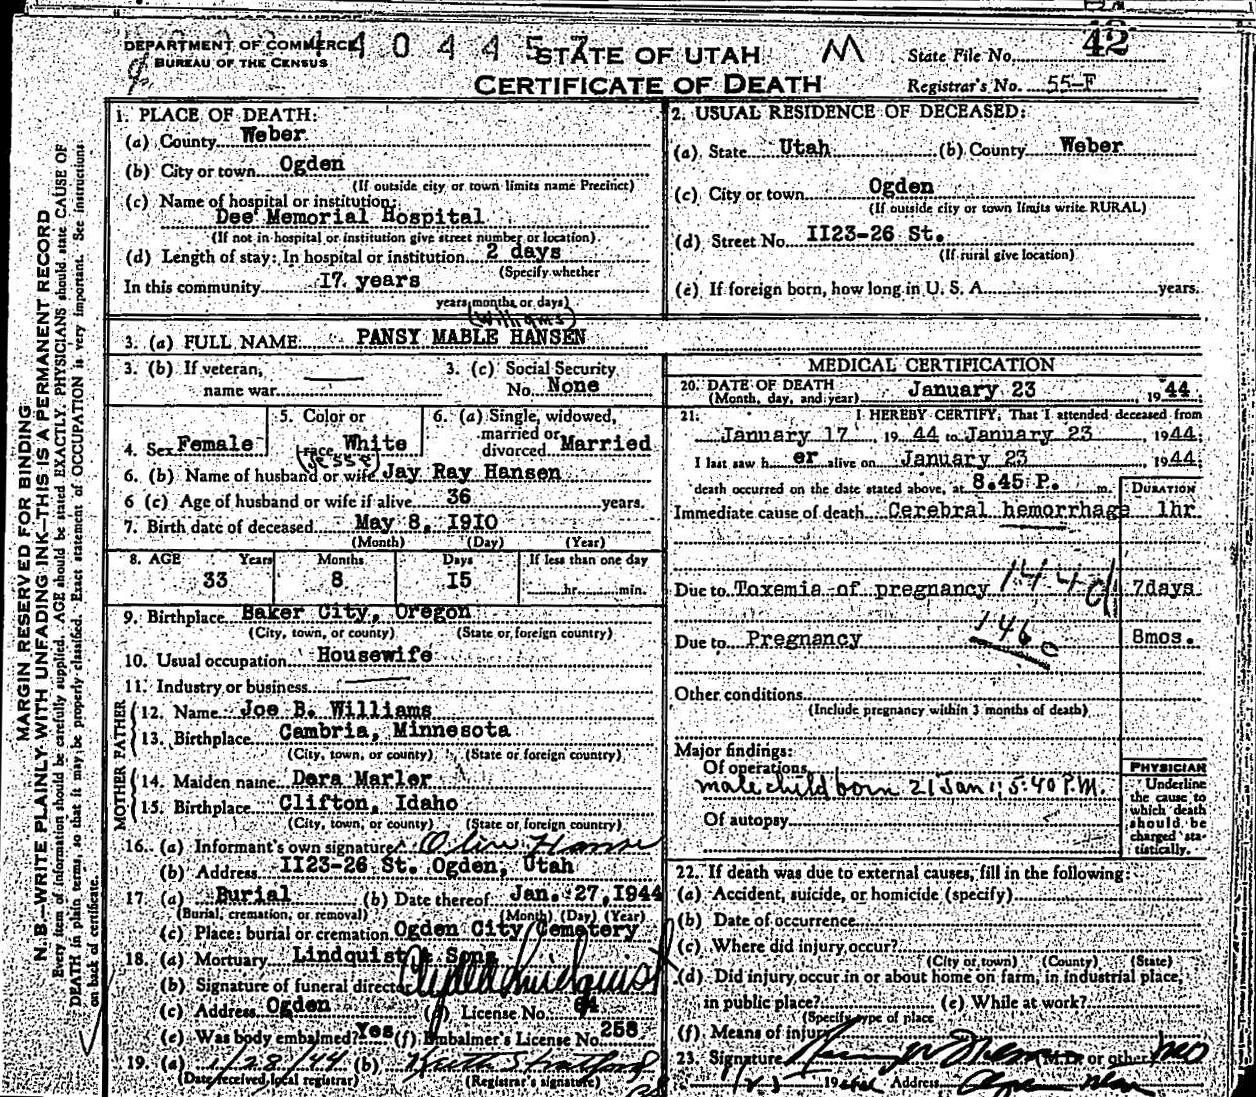 DEPARTMENT OF COMMERCE
BUREAU OF THE CENSUS
4 0 4 4 5 7
STATE OF UTAH
CERTIFICATE OF DEATH
M
State File No. 42
Registrar's No. 55-F
MARGIN RESERVED FOR BINDING
N.B.—WRITE PLAINLY WITH UNFADING INK—THIS IS A PERMANENT RECORD
Every item of information should be carefully supplied. AGE should be stated EXACTLY. PHYSICIANS should state CAUSE OF
DEATH in plain terms, so that it may be properly classified. Exact statement of OCCUPATION is very important. See instructions
on back of certificate.
1. PLACE OF DEATH:
(a) County Weber
(b) City or town Ogden
(If outside city or town limits name Precinct)
(c) Name of hospital or institution:
Dee Memorial Hospital
(If not in hospital or institution give street number or location)
(d) Length of stay: In hospital or institution 2 days
(Specify whether
In this community 17 years
years months or days)
2. USUAL RESIDENCE OF DECEASED:
(a) State Utah (b) County Weber
(c) City or town Ogden
(If outside city or town limits write RURAL)
(d) Street No. II23-26 St.
(If rural give location)
(e) If foreign born, how long in U. S. A. years.
(Williams)
3. (a) FULL NAME PANSY MABLE HANSEN
3. (b) If veteran,
name war
3. (c) Social Security
No. None
4. Sex Female
5. Color or
race White
6. (a) Single, widowed,
married or
divorced Married
(Jesse)
6. (b) Name of husband or wife Jay Ray Hansen
6 (c) Age of husband or wife if alive 36 years.
7. Birth date of deceased May 8, I9I0
(Month) (Day) (Year)
8. AGE Years Months Days If less than one day
33 8 I5 hr. min.
9. Birthplace Baker City, Oregon
(City, town, or county) (State or foreign country)
10. Usual occupation Housewife
11. Industry or business
FATHER
12. Name Joe B. Williams
13. Birthplace Cambria, Minnesota
(City, town, or county) (State or foreign country)
MOTHER
14. Maiden name Dera Marler
15. Birthplace Clifton, Idaho
(City, town, or county) (State or foreign country)
16. (a) Informant's own signature Olive Hansen
(b) Address II23-26 St. Ogden, Utah
17 (a) Burial (b) Date thereof Jan. 27, I944
(Burial, cremation, or removal) (Month) (Day) (Year)
(c) Place: burial or cremation Ogden City Cemetery
18. (a) Mortuary Lindquist & Sons
(b) Signature of funeral director Clyde Lindquist
(c) Address Ogden (d) License No. 64
(e) Was body embalmed? Yes (f) Embalmer's License No. 258
19. (a) 1/28/44 (b) Keith Stratford
(Date received, local registrar) (Registrar's signature)
MEDICAL CERTIFICATION
20. DATE OF DEATH
(Month, day, and year) January 23, 1944
21. I HEREBY CERTIFY, That I attended deceased from
January 17, 1944 to January 23 1944
I last saw her alive on January 23 1944
death occurred on the date stated above, at 8.45 P. m.
DURATION
Immediate cause of death Cerebral hemorrhage 1hr
Due to Toxemia of pregnancy 144d 7days
Due to Pregnancy 146 8mos.
Other conditions
(Include pregnancy within 3 months of death)
Major findings:
Of operations
male child born 21 Jan; 5:40 P.M.
Of autopsy
PHYSICIAN
Underline
the cause to
which death
should be
charged sta-
tistically.
22. If death was due to external causes, fill in the following:
(a) Accident, suicide, or homicide (specify)
(b) Date of occurrence
(c) Where did injury occur?
(City or town) (County) (State)
(d) Did injury occur in or about home on farm, in industrial place,
in public place? (e) While at work?
(Specify type of place
(f) Means of injury
23. Signature M.D. or other MD
19 Address